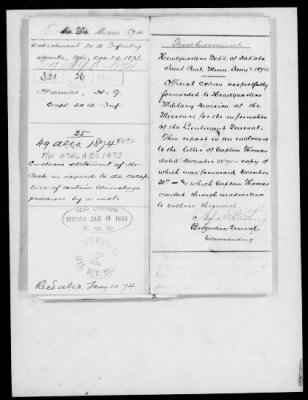 Detachment 20th Infantry
Sparta, Wis, Dec 29, 1873.
321
26
Thomas, H. G.
Capt. 20th Inf.
25
49 Dacs. 1874
Encloses statement of
in regard to the
of certain Winnebago
prisoners by a mob.
HEAD QUARTERS
RECEIVED JAN 9 1874
Recd Jany 10. 74
First Endorsement.
Headquarters Dept. of Dakota
Saint Paul, Minn. Jany 1874
Official copies respectfully
forwarded to Headquarters
Military Division of the
Missouri for the information
of the Lieutenant General.
This report is an enclosure
to the letter of Captain Thomas
dated December copy of
which was forwarded December
31st which Captain Thomas
omitted through inadvertence
to enclose therewith.
Brigadier General
Commanding